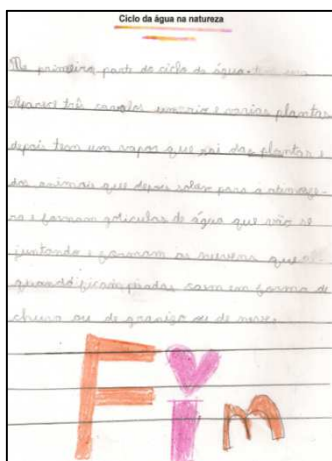 Ciclo da água na natureza
Na primeira parte do ciclo da água tem uma
Aparece três cavalos um rio e varias plantas
depois tem um vapor que sai das plantas e
dos animais que depois sobem para a atmosfe
ra e formam goticulas de água que vão se
juntando e formam as nuvens que
quando ficam pesadas caem em forma de
chuva ou de granizo ou de neve.
Fim